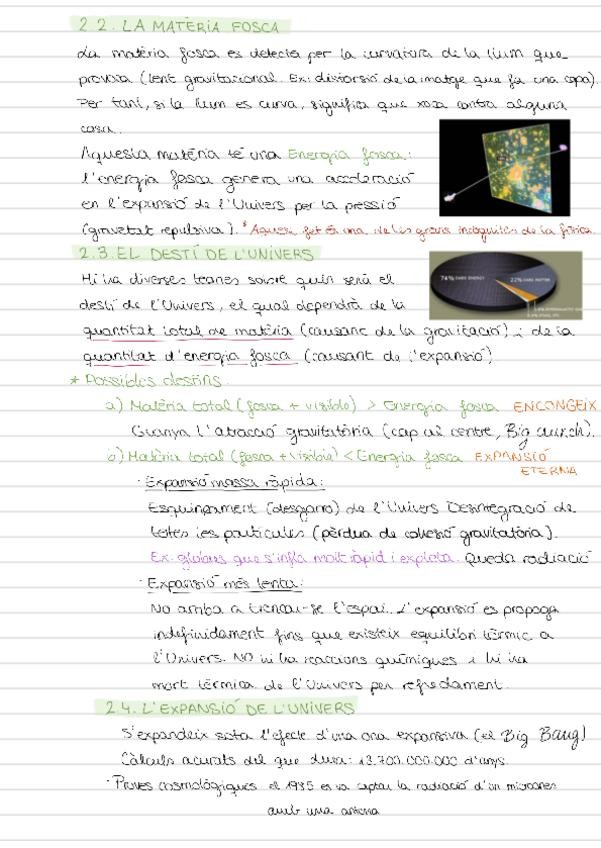 2.2. LA MATÈRIA FOSCA
La matèria fosca es detecta per la curvatura de la llum que
provoca (lent gravitacional. Ex: distorsió de la imatge que fa una copa).
Per tant, si la llum es curva, significa que xoca contra alguna
cosa.
Aquesta matèria té una Energia fosca:
l'energia fosca genera una acceleració
en l'expansió de l'Univers per la pressió
(gravetat repulsiva). * Aquest fet és una de les grans incògnites de la física.
2.3. EL DESTÍ DE L'UNIVERS
Hi ha diverses teories sobre quin serà el
destí de l'Univers, el qual dependrà de la
74% DARK ENERGY
22% DARK MATTER
quantitat total de matèria (causant de la gravitació) i de la
quantitat d'energia fosca (causant de l'expansió)
* Possibles destins
a) Matèria total (fosca + visible) > Energia fosca ENCONGEIX
Guanya l'atracció gravitatòria (cap al centre, Big crunch).
b) Matèria total (fosca + visible) < Energia fosca EXPANSIÓ
ETERNA
· Expansió massa ràpida:
Esquinçament (desgarro) de l'Univers Desintegració de
totes les partícules (pèrdua de cohesió gravitatòria).
Ex: globus que s'infla molt ràpid i explota. Queda radiació
· Expansió més lenta:
No arriba a trencar-se l'espai. L'expansió es propaga
indefinidament fins que existeix equilibri tèrmic a
l'Univers. NO hi ha reaccions químiques i hi ha
mort tèrmica de l'Univers per refredament.
2.4. L'EXPANSIÓ DE L'UNIVERS
S'expandeix sota l'efecte d'una ona expansiva (el Big Bang)
Càlculs acurats del que dura: 13.700.000.000 d'anys.
· Proves cosmològiques el 1965 es va captar la radiació d'un microones
amb una antena